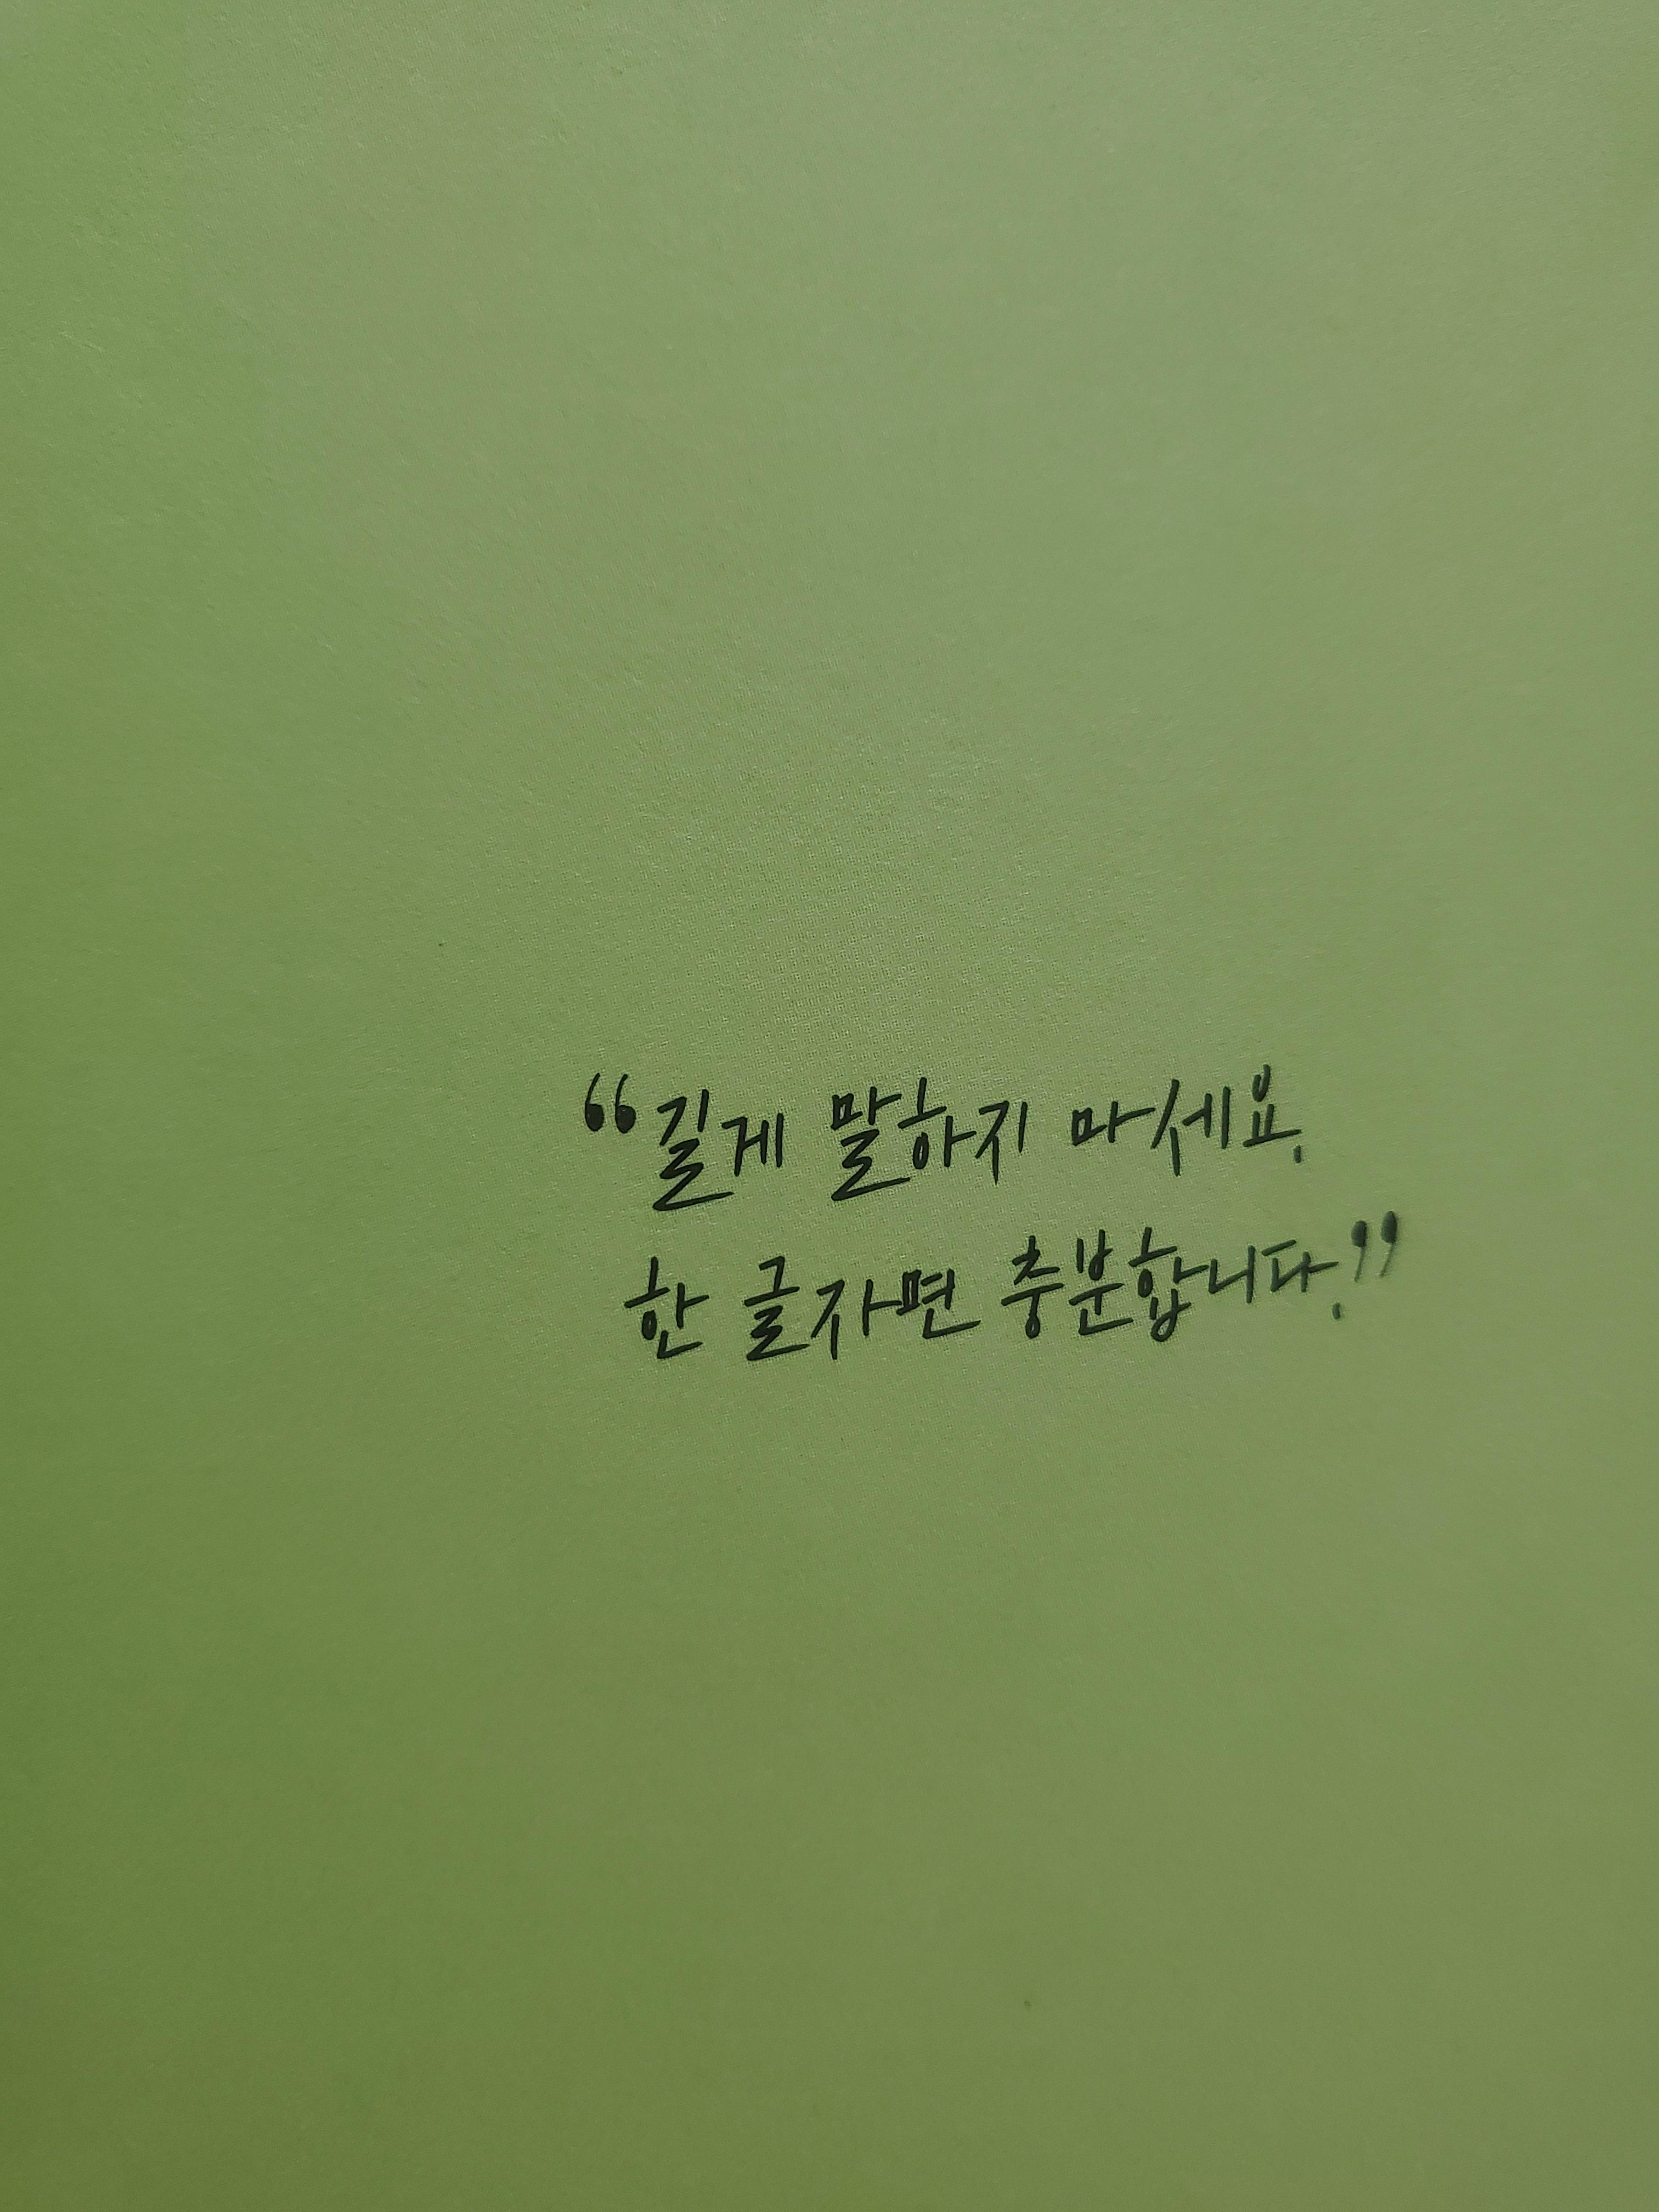 “길게 말하지 마세요.
한 글자면 충분합니다.”